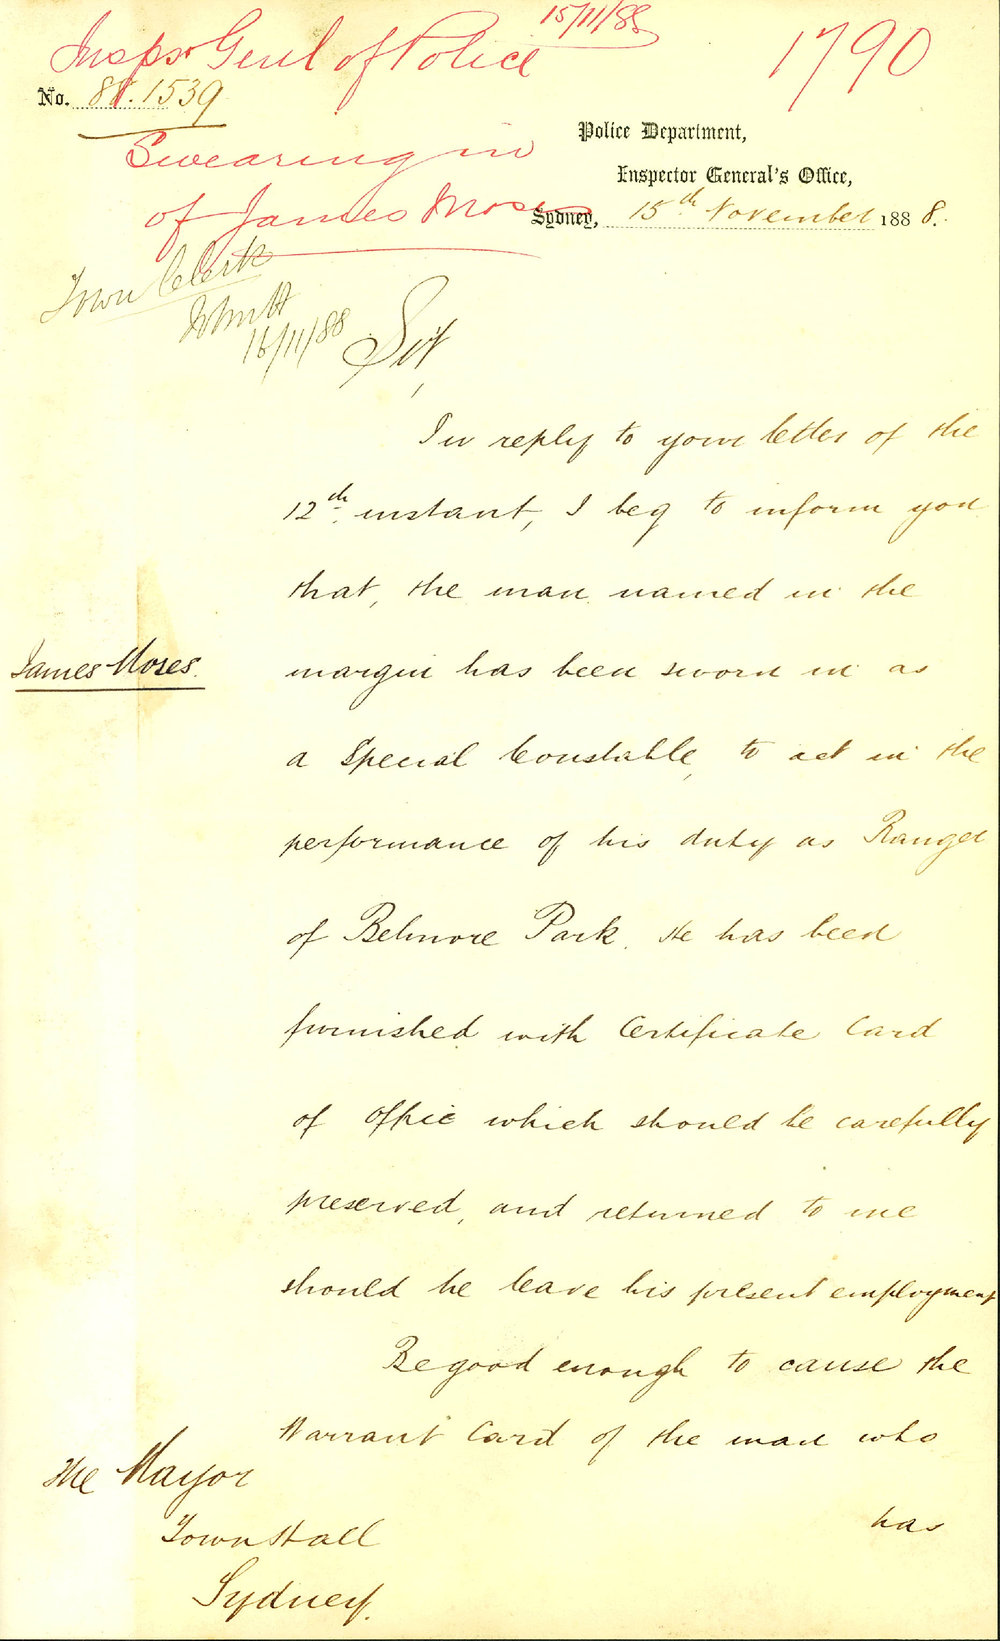 15/11/88
Inspr Genl of Police
1790
No. 88.1539
Police Department,
Swearing in
Inspector General's Office,
of James Moses
Sydney, 15th November 1888.
Town Clerk
16/11/88
Sir,
In reply to your letter of the
12th instant, I beg to inform you
that, the man named in the
James Moses.
margin has been sworn in as
a Special Constable, to act in the
performance of his duty as Ranger
of Belmore Park. He has been
furnished with Certificate Card
of Office which should be carefully
preserved, and returned to me
should he leave his present employment
Be good enough to cause the
Warrant Card of the man who
has
The Mayor
Town Hall
Sydney.